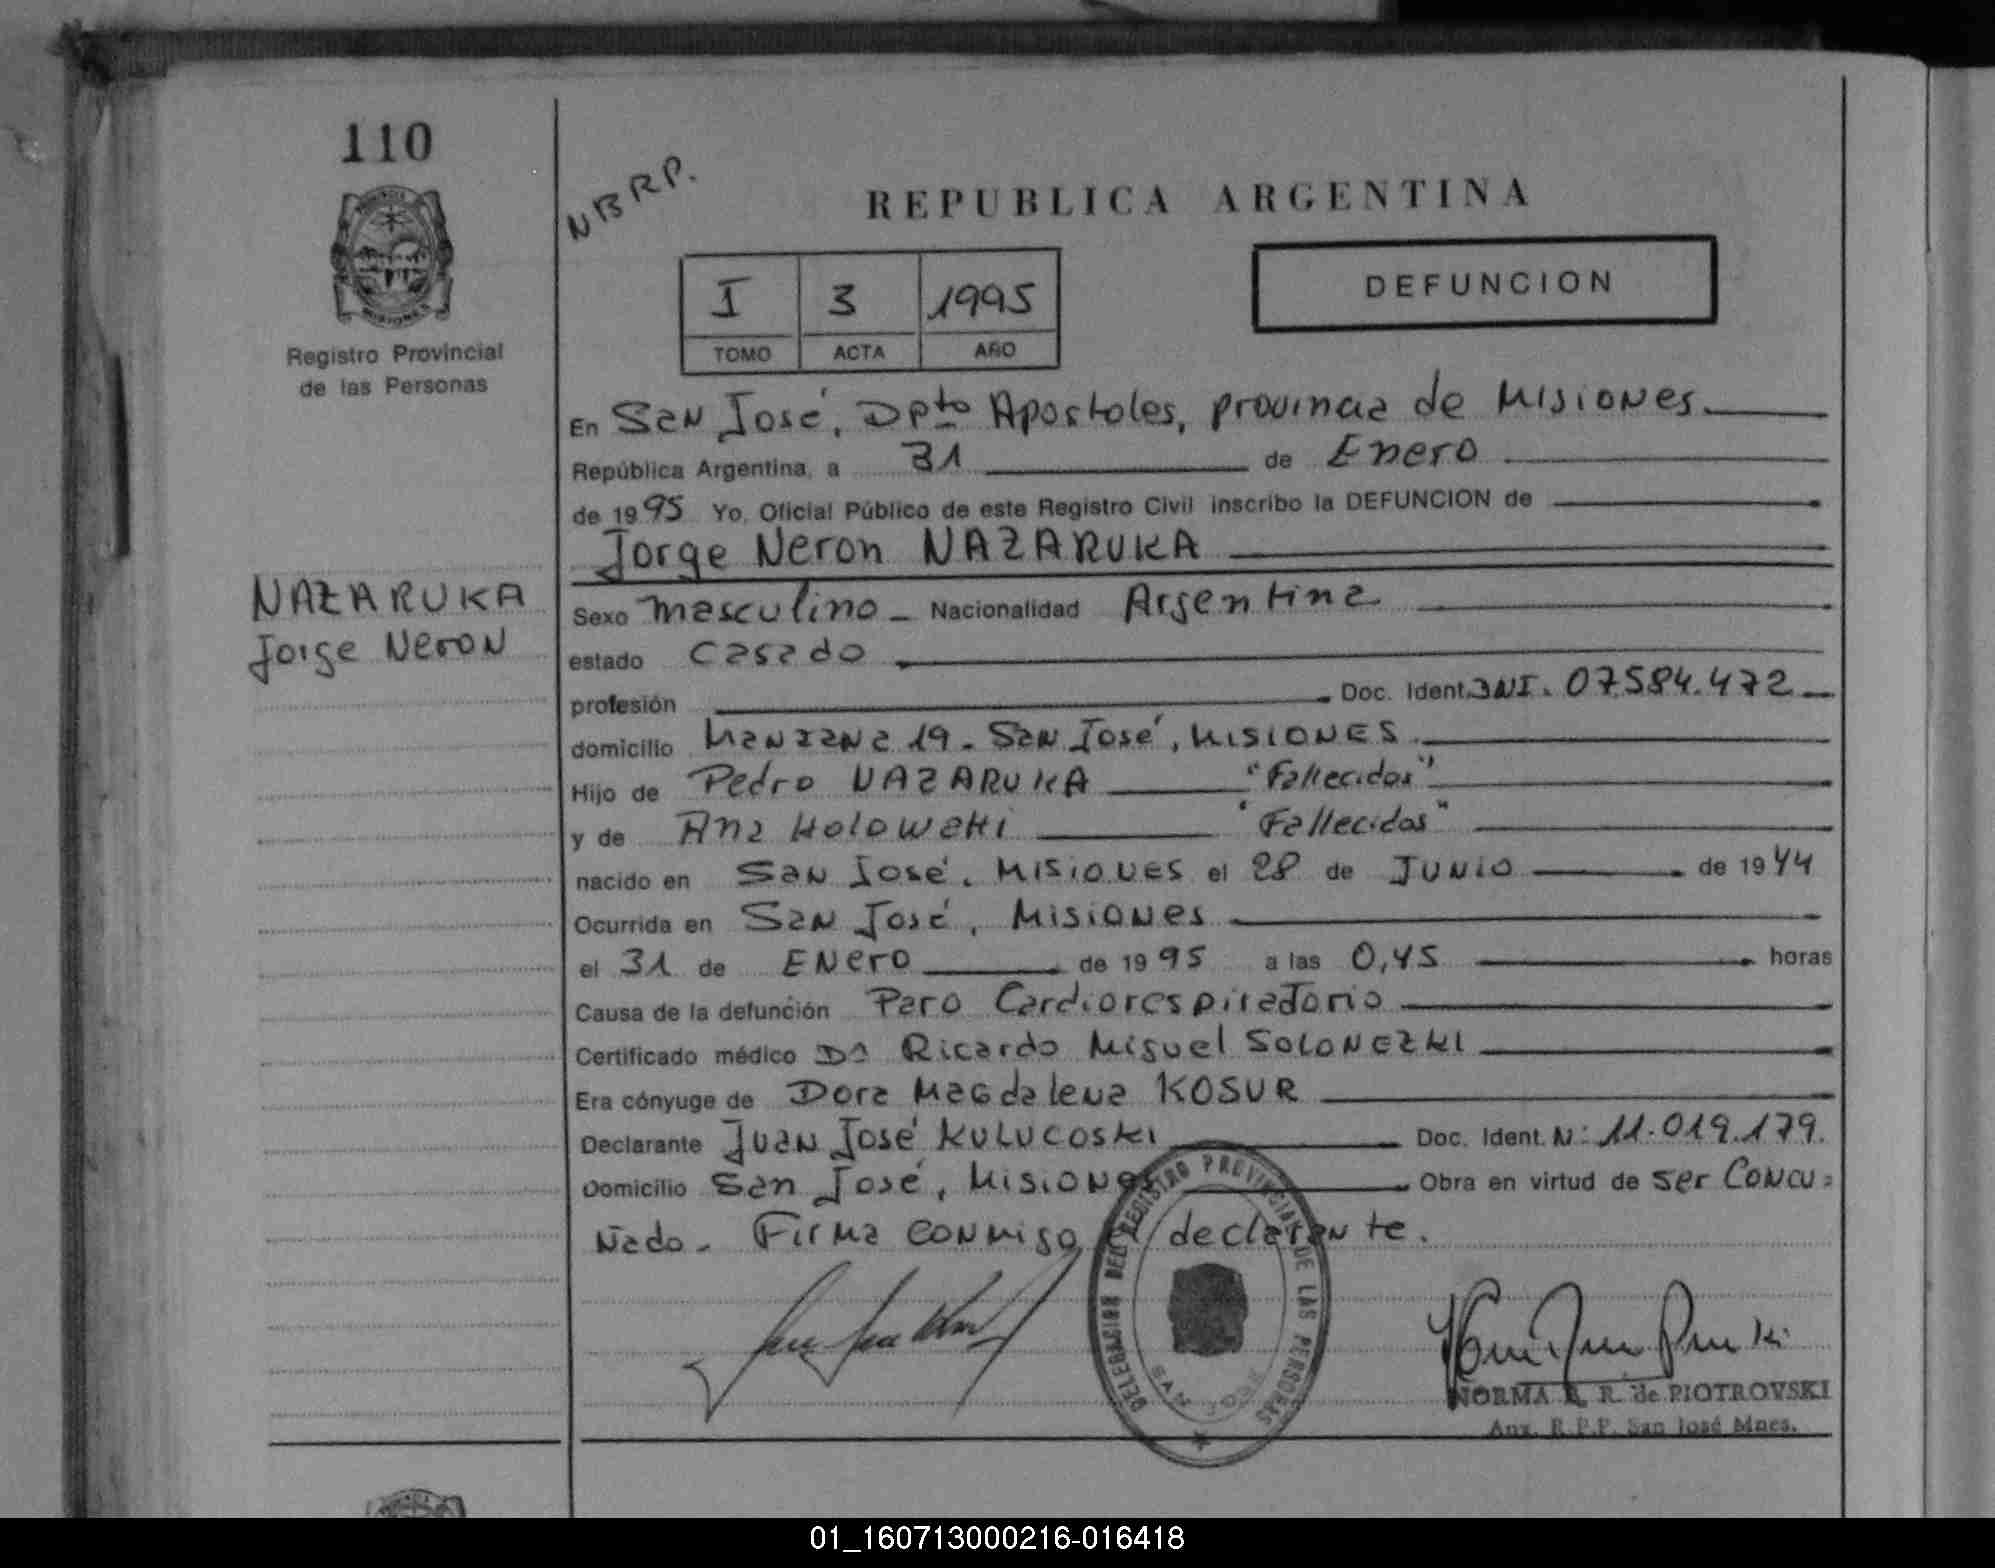 110
Registro Provincial
de las Personas
NAZARUKA
Jorge Neron
NBRP.
REPUBLICA ARGENTINA
I 3 1995
TOMO ACTA AÑO
DEFUNCION
En San José, Dpto Apostoles, provincia de Misiones.
República Argentina, a 31 de Enero
de 1995 Yo, Oficial Público de este Registro Civil inscribo la DEFUNCION de
Jorge Neron NAZARUKA
Sexo masculino - Nacionalidad Argentina
estado Casado
profesión Doc. Ident. DNI. 07.584.472
domicilio Manzana 19 - San José, Misiones
Hijo de Pedro NAZARUKA "Fallecidos"
y de Ana Holowati "Fallecidos"
nacido en San José, Misiones el 28 de Junio de 1944
Ocurrida en San José, Misiones
el 31 de Enero de 1995 a las 0,45 horas
Causa de la defunción Paro Cardiorespiratorio
Certificado médico Dr Ricardo Miguel SOLONEZKI
Era cónyuge de Dora Magdalena KOSUR
Declarante Juan José KULUCOSKI Doc. Ident. N: 11.019.179.
Domicilio San José, Misiones Obra en virtud de ser Concu=
ñado - Firma conmigo el declarante.
DELEGACION DEL REGISTRO PROVINCIAL DE LAS PERSONAS
SAN JOSE
NORMA B. R. de PIOTROVSKI
Anx. R.P.P. San José Mnes.
01_160713000216-016418